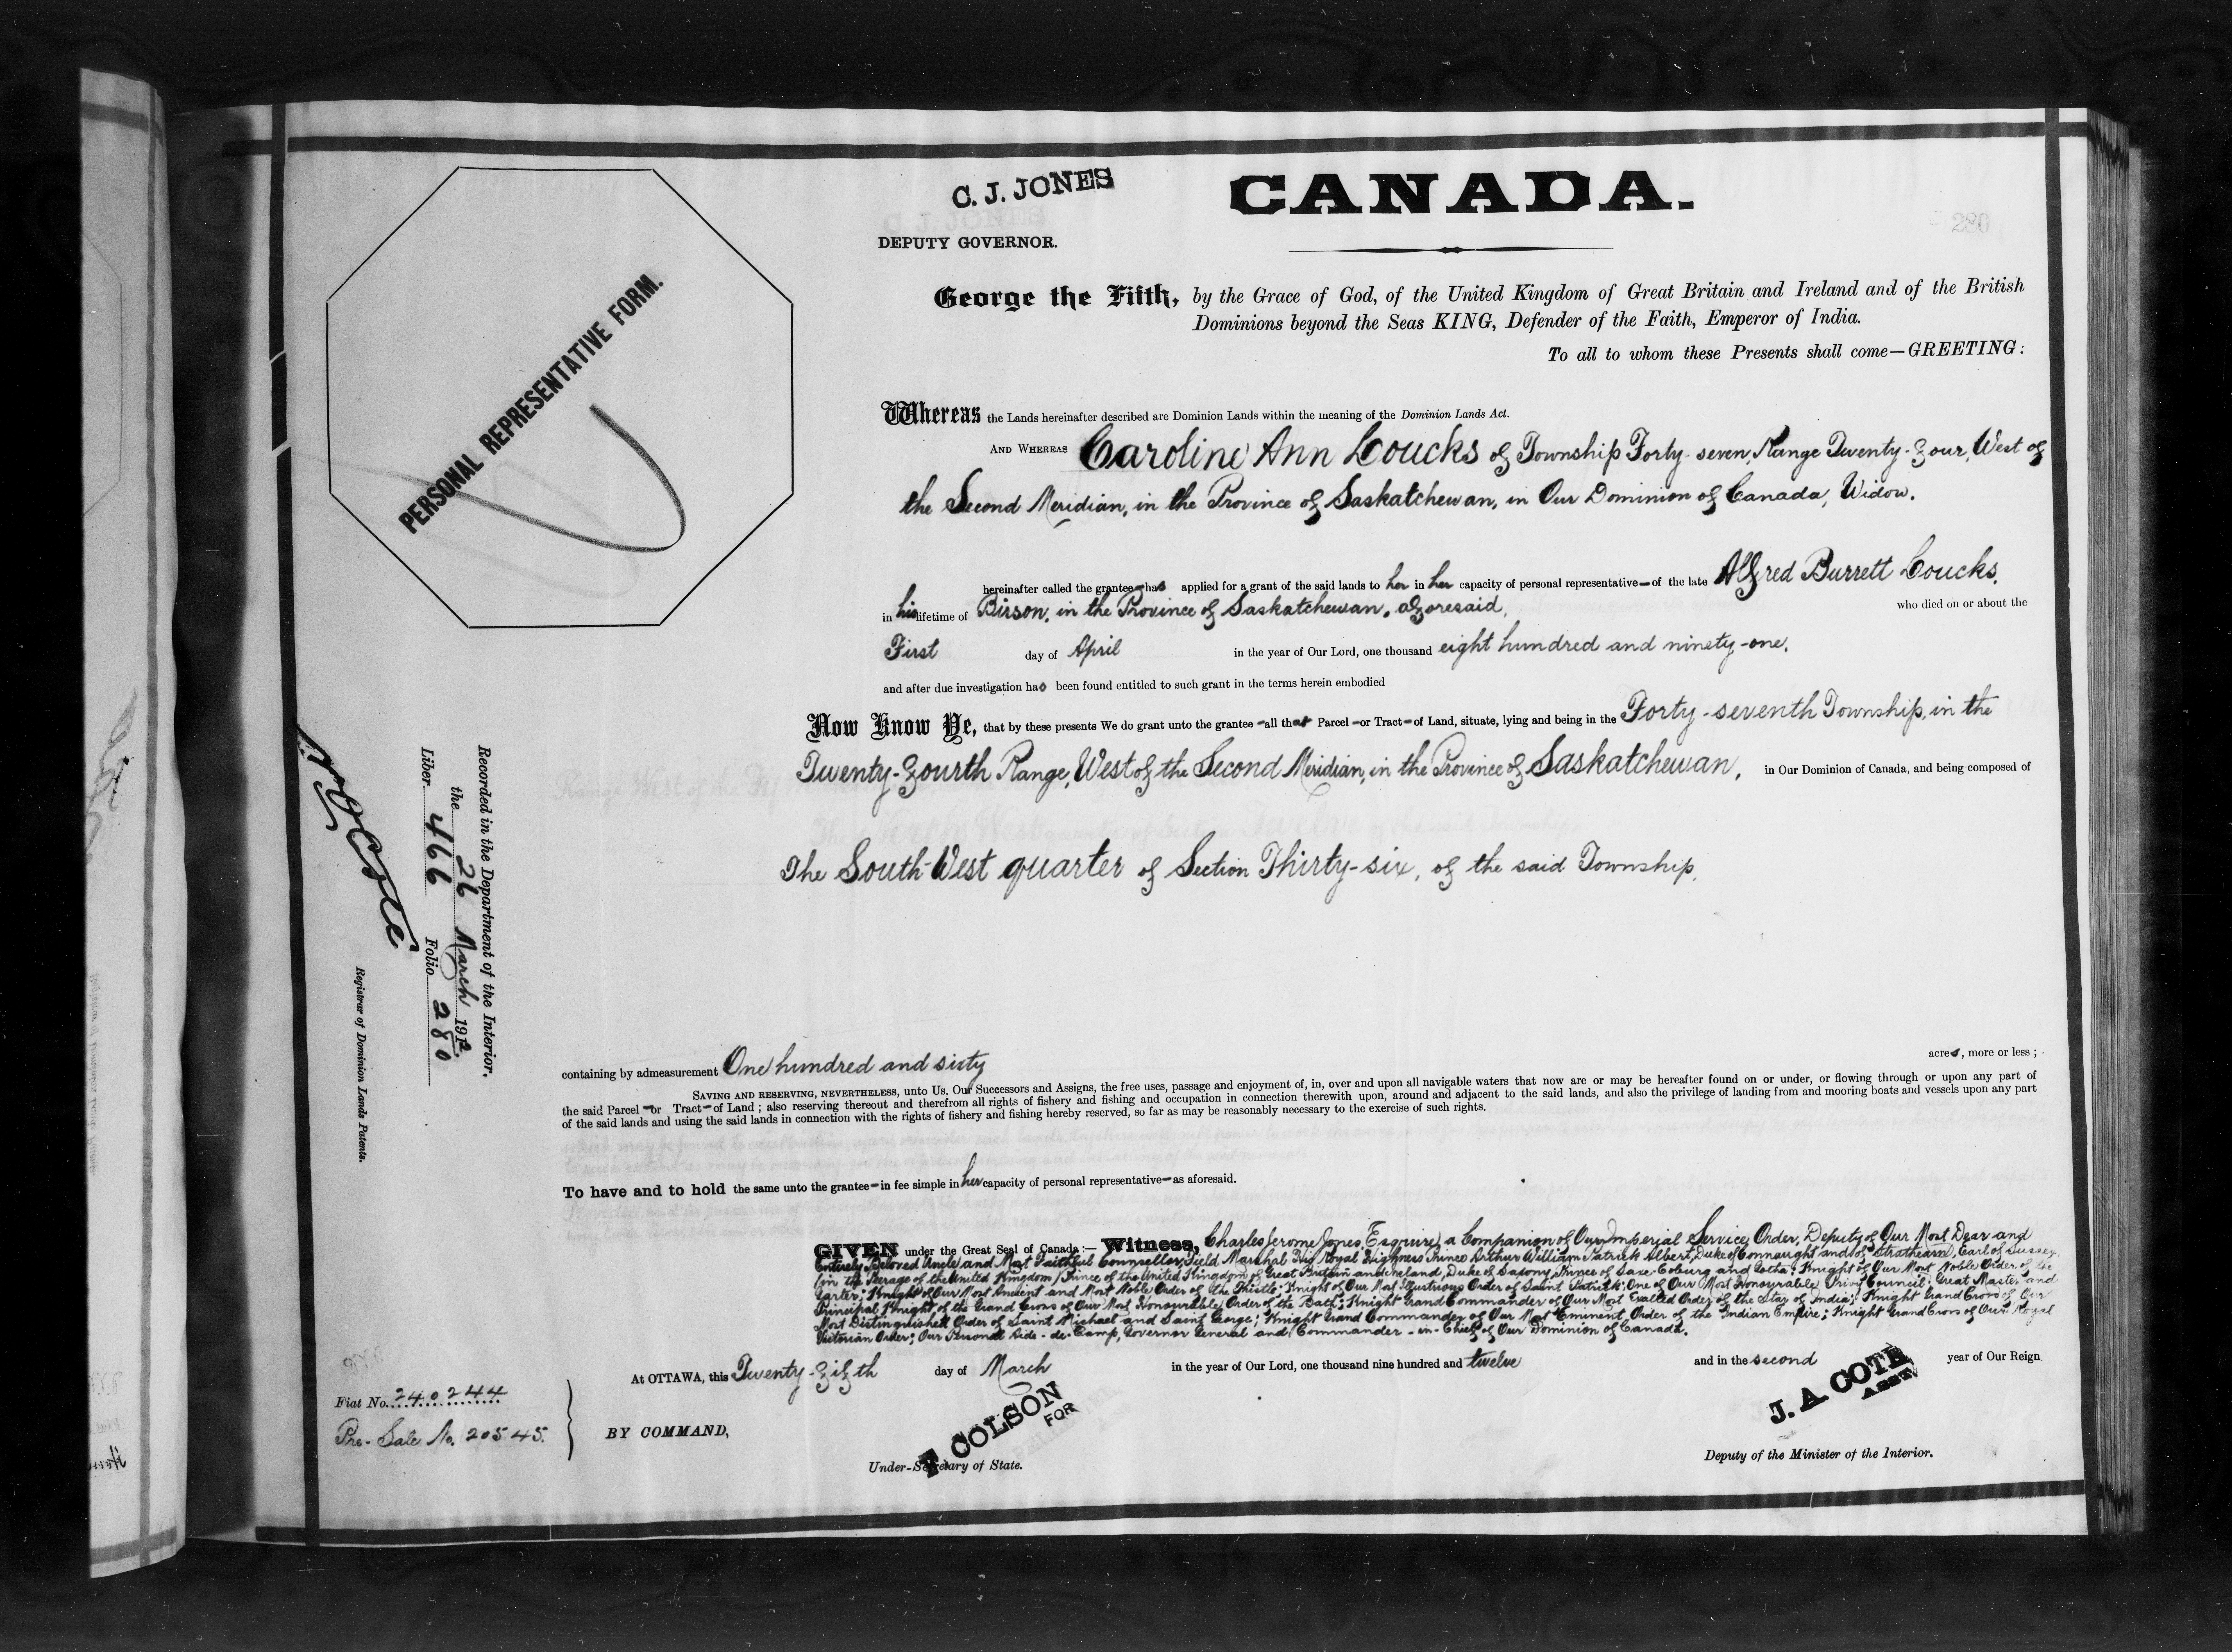 C. J. JONES
CANADA.
280
DEPUTY GOVERNOR.
George the Fifth, by the Grace of God, of the United Kingdom of Great Britain and Ireland and of the British
Dominions beyond the Seas KING, Defender of the Faith, Emperor of India.
To all to whom these Presents shall come—GREETING:
PERSONAL REPRESENTATIVE FORM.
Whereas the Lands hereinafter described are Dominion Lands within the meaning of the Dominion Lands Act.
AND WHEREAS Caroline Ann Loucks of Township Forty-seven, Range Twenty-four, West of
the Second Meridian, in the Province of Saskatchewan, in Our Dominion of Canada, Widow.
hereinafter called the grantee has applied for a grant of the said lands to her in her capacity of personal representative of the late Alfred Burrett Loucks,
in his lifetime of Birson, in the Province of Saskatchewan, aforesaid, who died on or about the
First day of April in the year of Our Lord, one thousand eight hundred and ninety-one,
and after due investigation has been found entitled to such grant in the terms herein embodied
Now Know Ye, that by these presents We do grant unto the grantee all that Parcel or Tract of Land, situate, lying and being in the Forty-seventh Township, in the
Twenty-fourth Range, West of the Second Meridian, in the Province of Saskatchewan, in Our Dominion of Canada, and being composed of
The South-West quarter of Section Thirty-six, of the said Township,
Recorded in the Department of the Interior,
the 26 March 1912
Liber 466 Folio 280
Registrar of Dominion Lands Patents.
containing by admeasurement One hundred and sixty acres, more or less;
SAVING AND RESERVING, NEVERTHELESS, unto Us, Our Successors and Assigns, the free uses, passage and enjoyment of, in, over and upon all navigable waters that now are or may be hereafter found on or under, or flowing through or upon any part of
the said Parcel or Tract of Land; also reserving thereout and therefrom all rights of fishery and fishing and occupation in connection therewith upon, around and adjacent to the said lands, and also the privilege of landing from and mooring boats and vessels upon any part
of the said lands and using the said lands in connection with the rights of fishery and fishing hereby reserved, so far as may be reasonably necessary to the exercise of such rights.
To have and to hold the same unto the grantee in fee simple in her capacity of personal representative as aforesaid.
GIVEN under the Great Seal of Canada:— Witness, Charles Jerome Jones, Esquire, a Companion of Our Imperial Service Order, Deputy of Our Most Dear and
Entirely Beloved Uncle and Most Faithful Counsellor, Field Marshal His Royal Highness Prince Arthur William Patrick Albert, Duke of Connaught and of Strathearn, Earl of Sussex
(in the Peerage of the United Kingdom) Prince of the United Kingdom of Great Britain and Ireland, Duke of Saxony, Prince of Saxe-Coburg and Gotha; Knight of Our Most Noble Order of the
Garter; Knight of Our Most Ancient and Most Noble Order of the Thistle; Knight of Our Most Illustrious Order of Saint Patrick; One of Our Most Honourable Privy Council; Great Master and
Principal Knight of the Grand Cross of Our Most Honourable Order of the Bath; Knight Grand Commander of Our Most Exalted Order of the Star of India; Knight Grand Cross of Our
Most Distinguished Order of Saint Michael and Saint George; Knight Grand Commander of Our Most Eminent Order of the Indian Empire; Knight Grand Cross of Our Royal
Victorian Order; Our Personal Aide-de-Camp, Governor General and Commander-in-Chief of Our Dominion of Canada.
At OTTAWA, this Twenty-fifth day of March in the year of Our Lord, one thousand nine hundred and twelve and in the second year of Our Reign
Fiat No. 240244
Pre-Sale No. 20545.
BY COMMAND,
COLSON
FOR
Under-Secretary of State.
J. A COTE
ASST
Deputy of the Minister of the Interior.